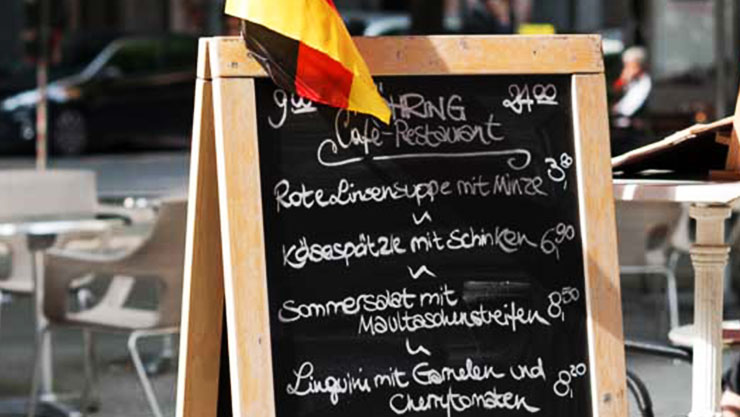 9⁰⁰ HRING 24⁰⁰
Café-Restaurant
Rote Linsensuppe mit Minze 3,80
Käsespätzle mit Schinken 6,90
Sommersalat mit
Maultaschenstreifen 8,50
Linguini mit Garnelen und
Cherrytomaten 8,20